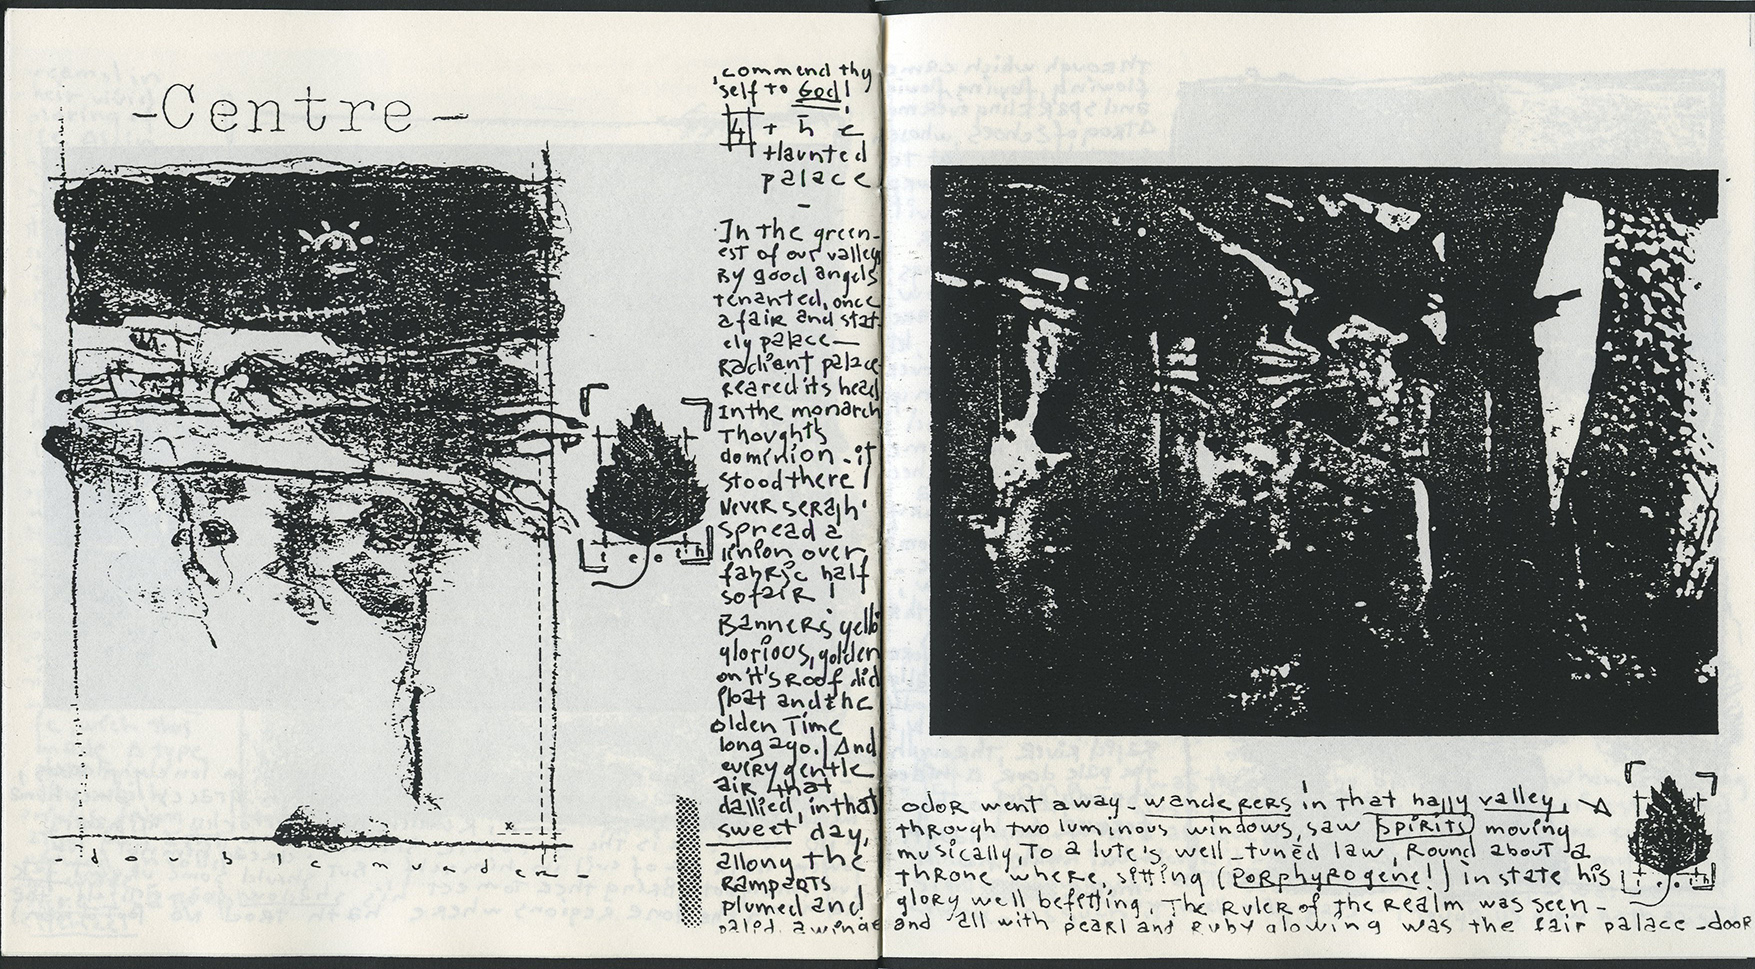 -Centre-
- d o u b l e m u r d e r -
commend thy
self to God!
4 the
Haunted
palace
-
In the green-
est of our valleys
By good angels
tenanted, once
a fair and stat-
ely palace—
Radiant palace
reared its head
In the monarch
Thoughts
dominion - it
stood there!
Never seraph
spread a
pinion over
fabric half
so fair!
Banners yello
glorious, golden
on it's roof did
float and the
olden Time
long ago.) And
every gentle
air that
dallied, in that
sweet day,
allong the
Ramparts
plumed and
palid, a winge
t e e t h
odor went away - wanderers in that happy valley,
through two luminous windows, saw spirits moving
musically, To a lute's well-tuned law, Round about a
throne where, sitting (Porphyrogene!) in state his
glory well befitting, The Ruler of the Realm was seen -
and all with pearl and ruby glowing was the fair palace - door